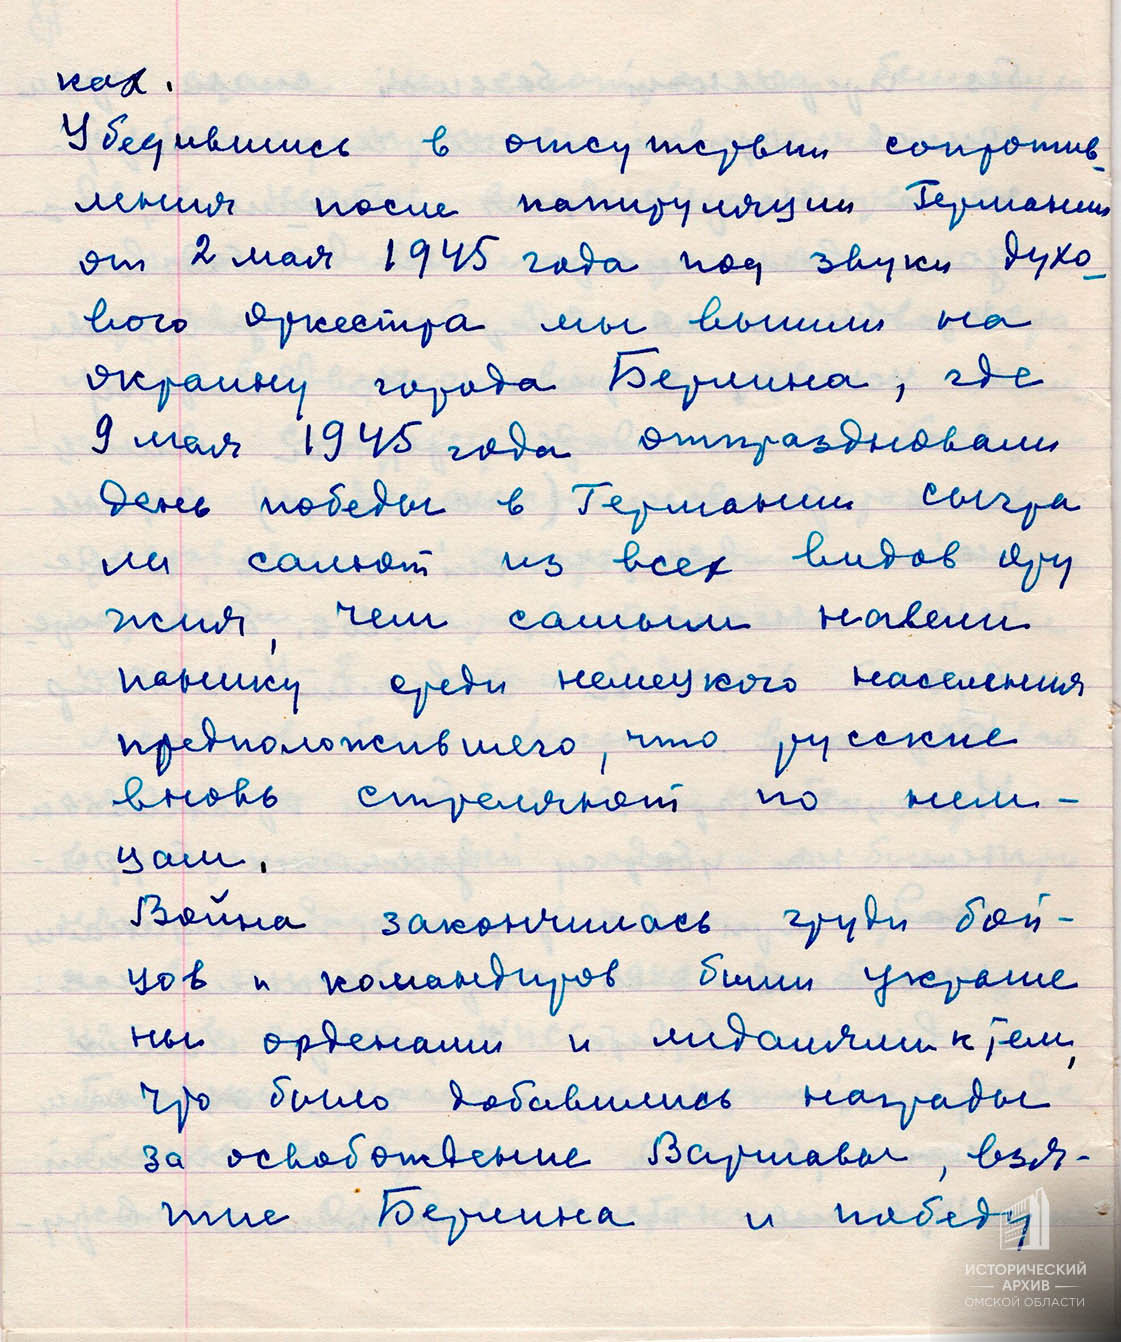 ках.
Убедившись в отсутствии сопротив-
ления после капитуляции Германии
от 2 мая 1945 года под звуки духо-
вого оркестра мы вышли на
окраину города Берлина, где
9 мая 1945 года отпраздновали
день победы в Германии сыгра
ли салют из всех видов ору
жия, чем самым навели
панику среди немецкого населения
предположившего, что русские
вновь стреляют по нем-
цам.
Война закончилась груди бой-
цов и командиров были украше
ны орденами и медалями к тем,
что было добавились награды
за освобождение Варшавы, взя-
тие Берлина и победу
ИСТОРИЧЕСКИЙ
АРХИВ
ОМСКОЙ ОБЛАСТИ